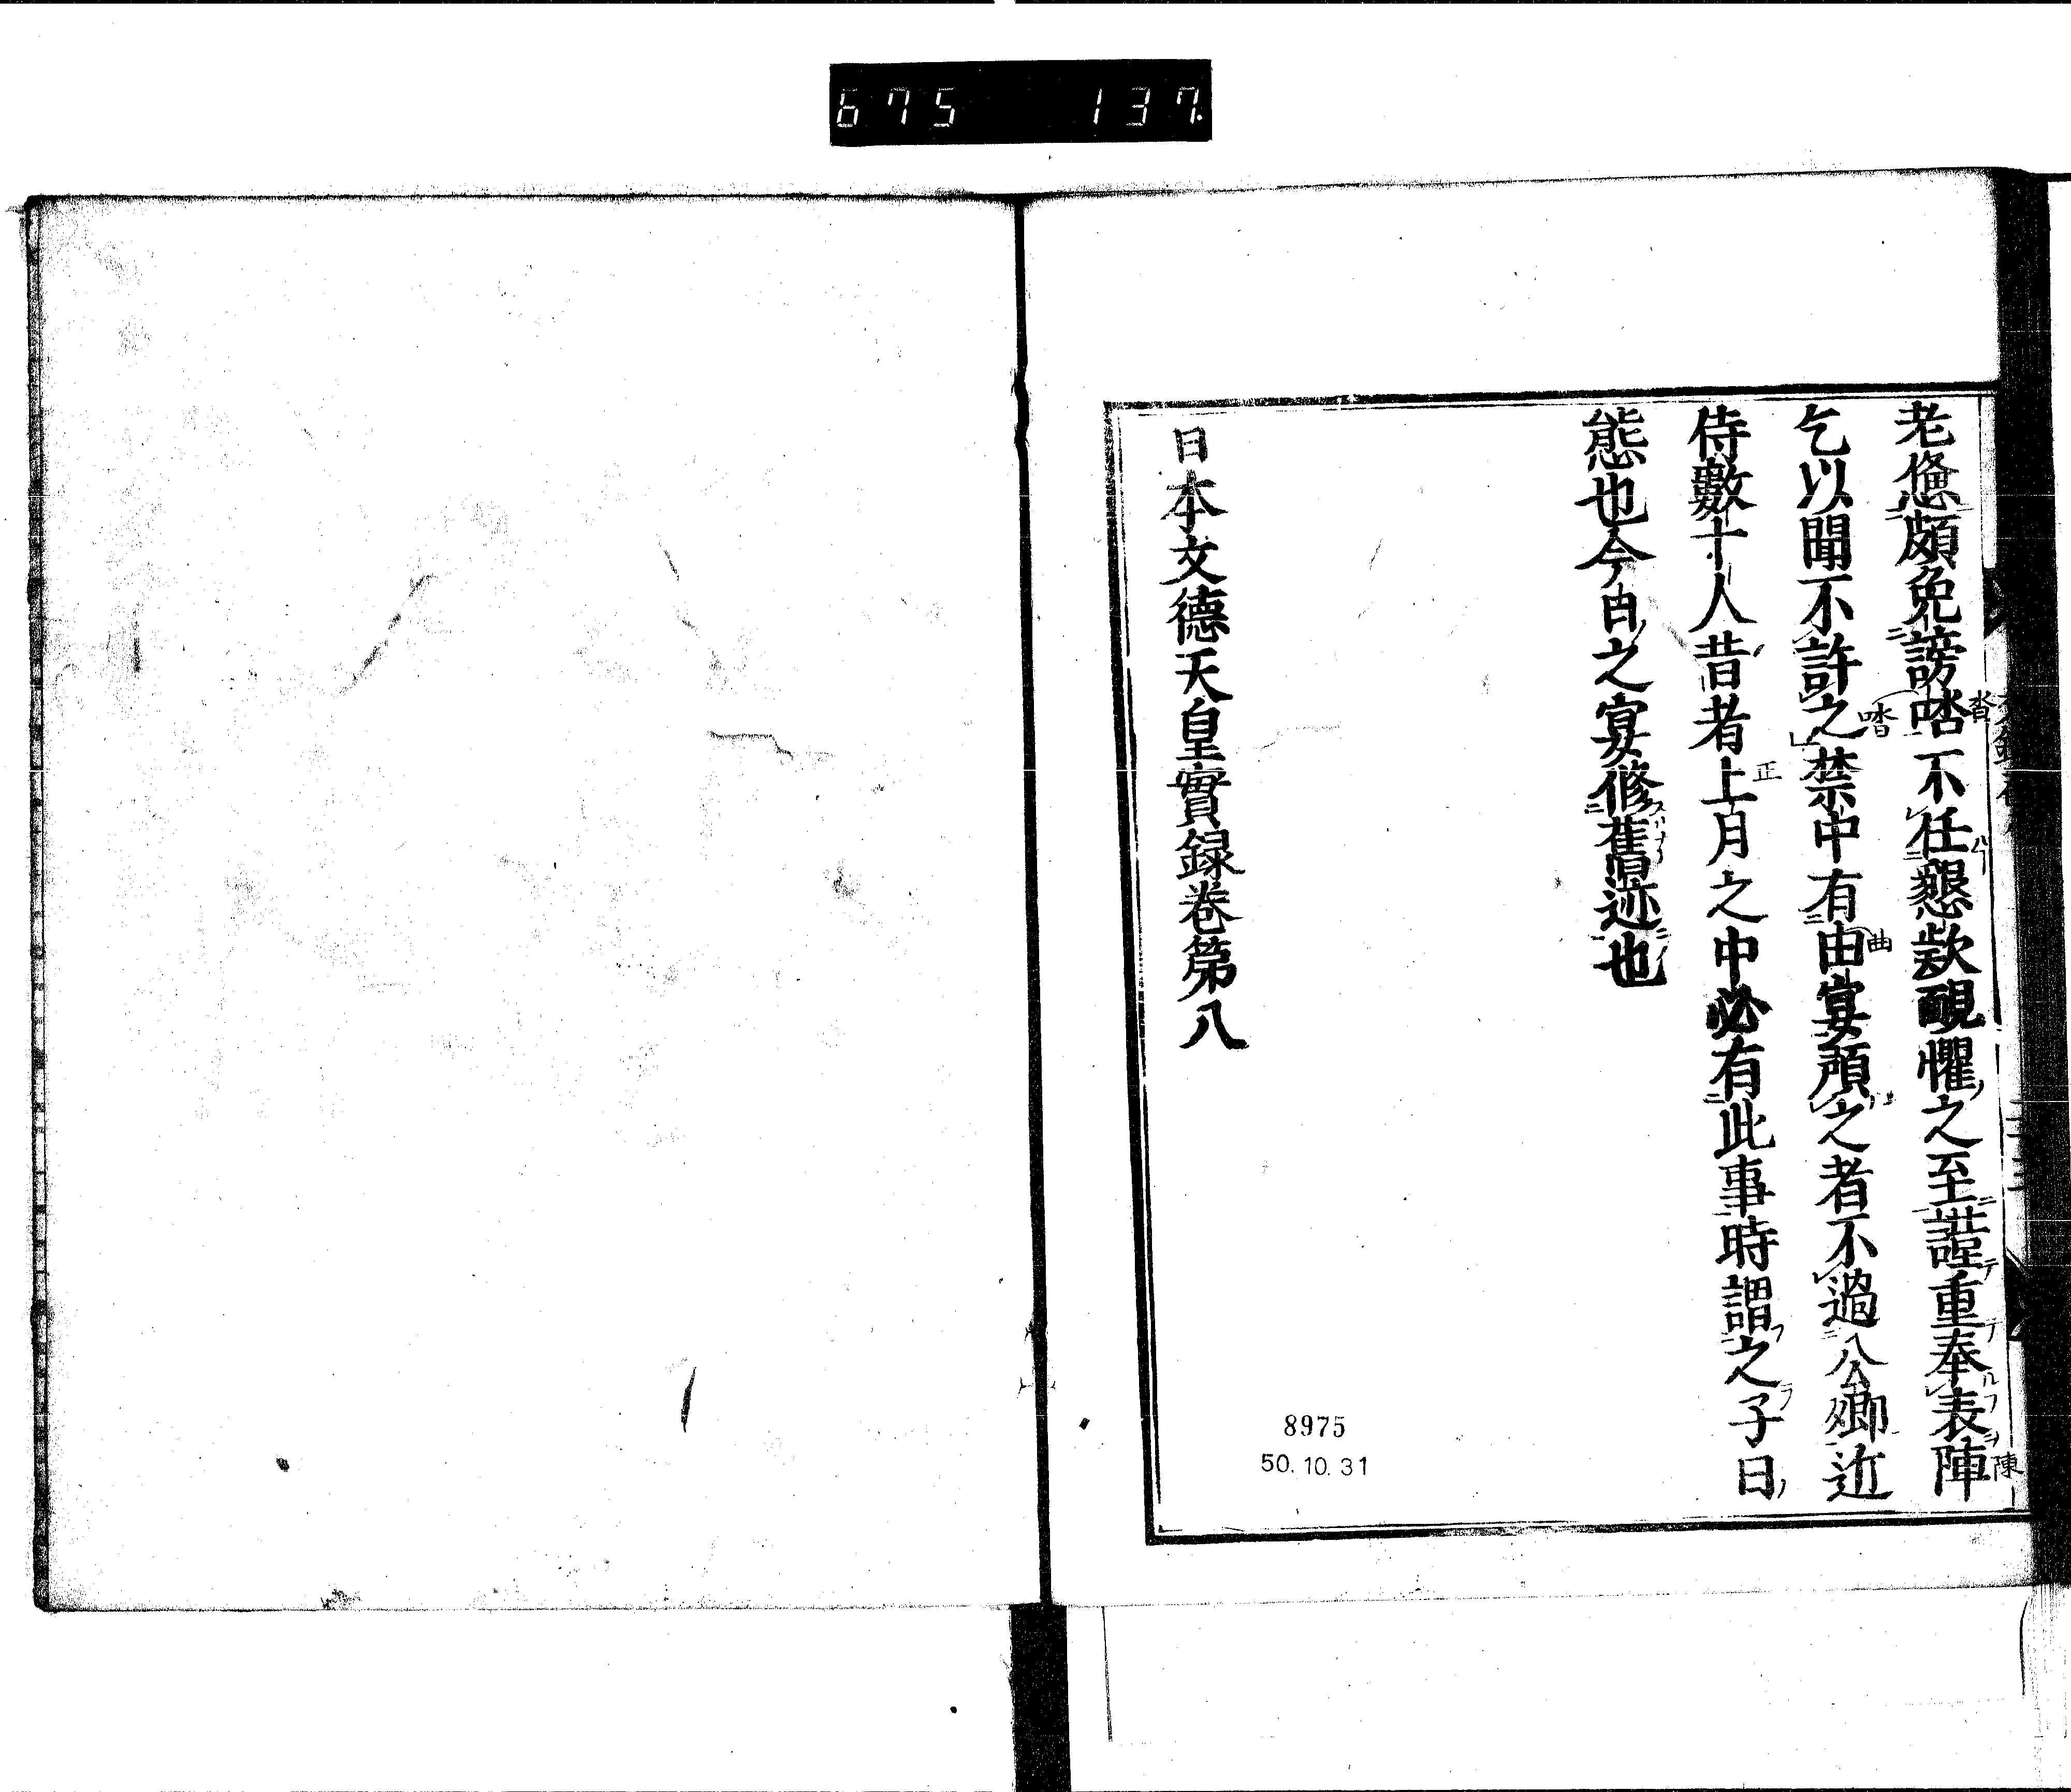 675 137.
老憊頗免謗㗳不任懇款覼懼之至謹重奉表陣
乞以聞不許之禁中有由宴預之者不過公卿近
侍數十人昔者上月之中必有此事時謂之子日
態也今日之宴修舊迹也
日本文德天皇實録卷第八
8975
50.10.31